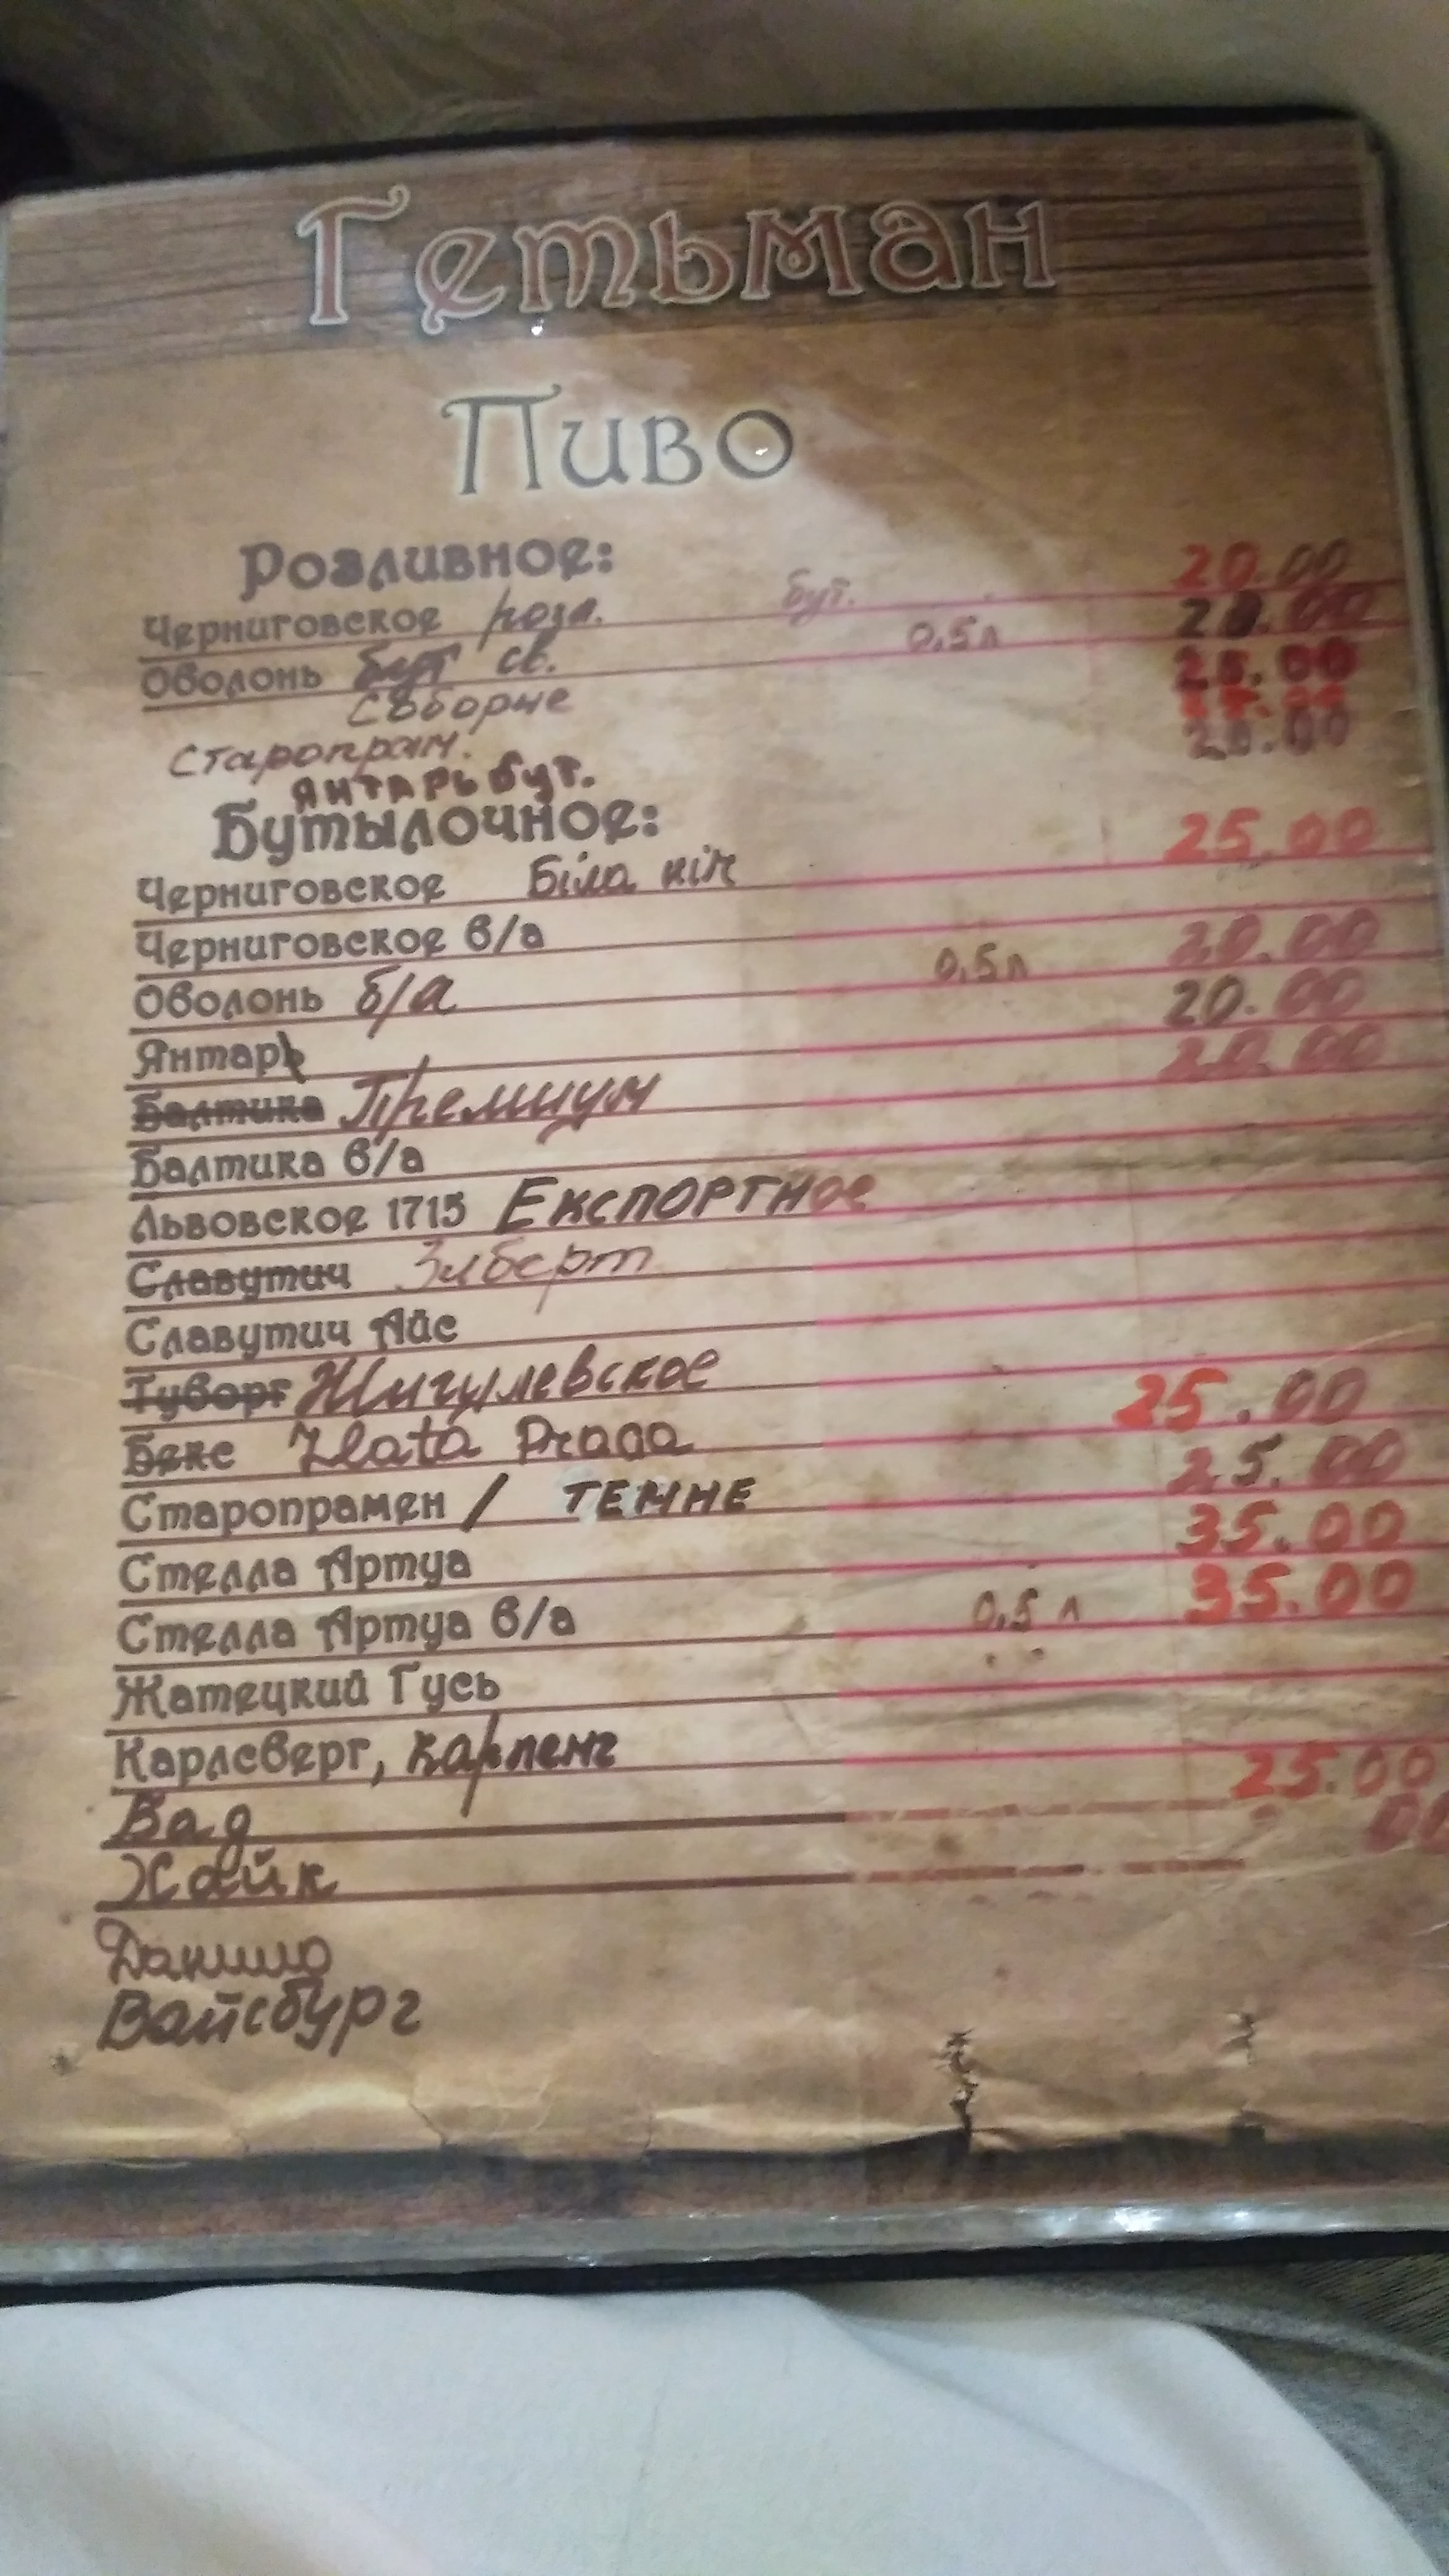 Гетьман
Пиво
Розливное: 20.00
Черниговское розл. бут. 20.00
Оболонь св. 0,5л 25.00
Соборне
Старопрам. 20.00
ЯНТАРЬ бут.
Бутылочное:
Черниговское Біла ніч 25.00
Черниговское б/а 20.00
Оболонь б/а 0,5л 20.00
Янтарь 20.00
Балтика Премиум
Балтика б/а
Львовское 1715 ЕКСПОРТНое
Славутич Зиберт
Славутич Айс
Туборг Жигулевское
Бекс Zlata Praga 25.00
Старопрамен / ТЕМНЕ 25.00
Стелла Артуа 35.00
Стелла Артуа б/а 0,5 л 35.00
Жатецкий Гусь
Карлсберг, 25.00
Бад 00
Хайк
Вайсбург